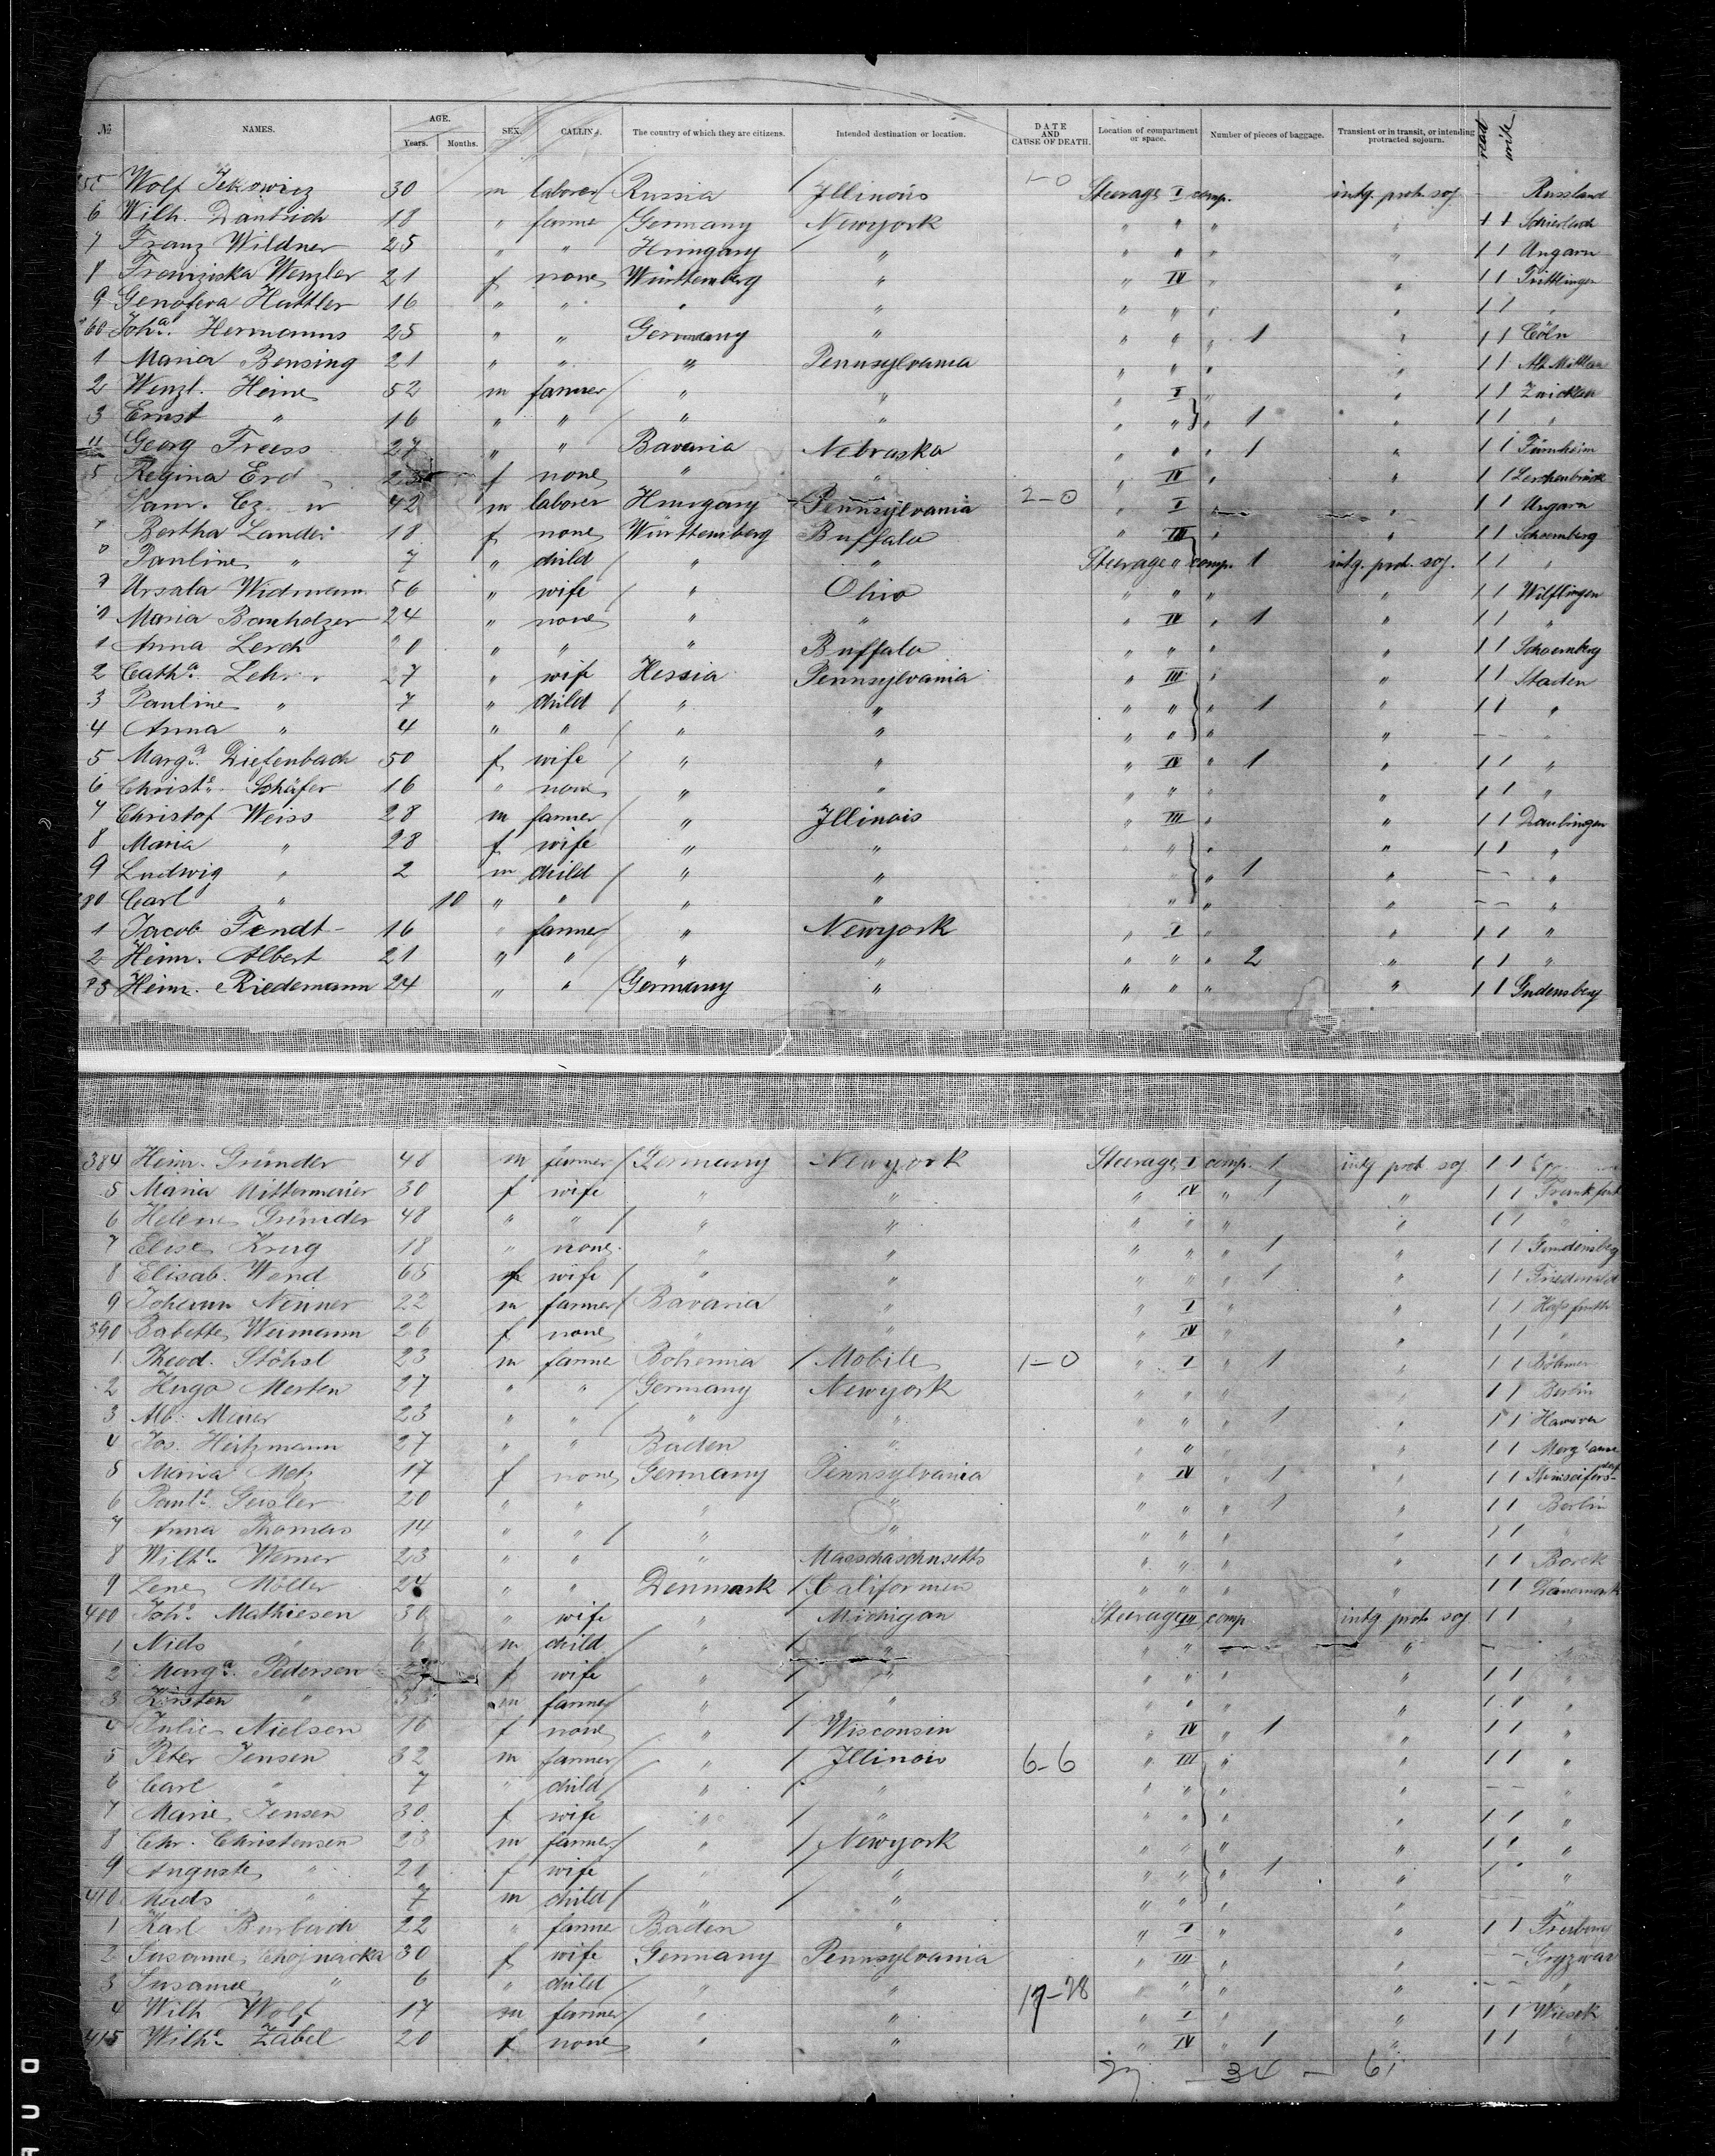 № NAMES. AGE. Years. Months. SEX. CALLING. The country of which they are citizens. Intended destination or location. DATE AND CAUSE OF DEATH. Location of compartment or space. Number of pieces of baggage. Transient or in transit, or intending protracted sojourn. read write
Wolf 30 m laborer Russia Illinois 1-0 Steerage I comp. intg. prot. soj - - Russland
6 Wilh. 18 " farmer Germany Newyork " " " " 1 1
7 Franz Wildner 25 " " Hungary " " " " " 1 1 Ungarn
8 Franziska Wenzler 21 f none Württemberg " " IV " " 1 1 Frittlingen
9 Genofeva Hattler 16 " " " " " " " " 1 1 "
60 Joha. Hermanns 25 " " Germany " " " " 1 " 1 1 Cöln
1 Maria Bensing 21 " " " Pennsylvania " " " " 1 1
2 Wenzl. Heine 52 m farmer " " " I " " 1 1
3 Ernst " 16 " " " " " " " 1 " 1 1 "
Georg Freess 27 " " Bavaria Nebraska " " " 1 " 1 1
5 Regina Erd 23 f none " " " IV " " 1 1
42 m laborer Hungary Pennsylvania 2-0 " I " " 1 1 Ungarn
Bertha Lander 18 f none Württemberg Buffalo " III " 1 1 Schoemberg
Pauline " 7 " child " " Steerage " comp. 1 intg. prot. soj. 1 1 "
Ursala Widmann 56 " wife " Ohio " " " " 1 1 Wilflingen
Maria Banholzer 24 " none " " " IV " 1 " 1 1 "
1 Anna Lerch " " " Buffalo " " " " 1 1 Schoemberg
2 Catha. 27 " wife Hessia Pennsylvania " III " " 1 1 Staden
3 Pauline " 7 " child " " " " " 1 " 1 1 "
4 Anna " 4 " " " " " " " " - - "
5 Marga. Diefenbach 50 f wife " " " IV " 1 " 1 1 "
6 Christe. Schäfer 16 " none " " " " " " 1 1 "
7 Christof Weiss 28 m farmer " Illinois " III " " 1 1 Daubringen
8 Maria " 28 f wife " " " " " " 1 1 "
9 Ludwig " 2 m child " " " " 1 " - - "
Carl " 10 " " " " " " " - - "
1 Jacob Fendt 16 " farmer " Newyork " I " " 1 1 "
2 Heinr. Albert 21 " " " " " " " 2 " 1 1 "
Heinr. Riedemann 24 " " Germany " " " " " 1 1 Gudensberg
384 Heinr. Gründer 48 m farmer Germany Newyork Steerage I comp. 1 intg prot soj 1 1
5 Maria Mittermeier 30 f wife " " " IV " 1 " 1 1 Frankfurt
6 Helene Gründer 48 " " " " " " " " 1 1 "
7 Elise Krug 18 " none " " " " " 1 " 1 1 Gudensberg
8 Elisab. Wend 65 f wife " " " " " 1 " 1 1 Friedewald
9 Johann Nenner 22 m farmer Bavaria " " I " " 1 1 Hassfurth
390 Babette Weimann 26 f none " " " IV " " 1 1 "
1 Theod. Stöhsl 23 m farmer Bohemia Mobile 1-0 " I " 1 " 1 1 Böhmen
2 Hugo Merten 27 " " Germany Newyork " " " " 1 1 Berlin
3 Alb. Meier 23 " " " " " " " 1 " 1 1 Hanover
4 Jos. Heitzmann 27 " " Baden " " " " " 1 1
5 Maria Metz 17 f none Germany Pennsylvania " IV " 1 " 1 1 Steinseifersdorf
6 Paule. Geisler 20 " " " " " " " 1 " 1 1 Berlin
7 Anna Thomas 14 " " " " " " " " 1 1 "
8 Wilhe. Werner 23 " " " Masschaschusetts " " " " 1 1 Borek
9 Lene Möller 24 " " Denmark Californien " " " " 1 1 Dänemark
400 Johe. Mathiesen 30 " wife " Michigan Steerage III comp intg prot soj 1 1 "
1 Niels " 6 m child " " " " " - "
2 Marga. Pedersen f wife " " " " " " 1 1 "
3 Kirsten " 33 m farmer " " " " " " 1 1 "
4 Julie Nielsen 16 f none " Wisconsin " IV " 1 " 1 1 "
5 Peter Jensen 32 m farmer " Illinois 6-6 " III " " 1 1 "
6 Carl " 7 " child " " " " " " - - "
7 Marie Jensen 30 f wife " " " " " " 1 1 "
8 Chr. Christensen 23 m farmer " Newyork " " " " 1 1 "
9 Auguste " 21 f wife " " " " " 1 " 1 "
410 Mads " 7 m child " " " " " " - - "
1 Karl Burbach 22 " farmer Baden " " I " " 1 1 Freiburg
2 Susanne Chojnacka 30 f wife Germany Pennsylvania " III " " - -
3 Susanne " 6 " child " " 17-28 " " " " - - "
4 Wilh Wolf 17 m farmer " " " I " " 1 1 Wieseck
415 Wilhe. Zabel 20 f none " " " IV " 1 " 1 1 "
34 - 61